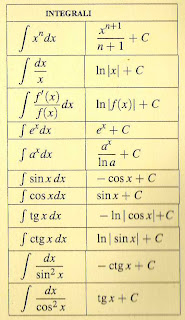 INTEGRALI
∫ xⁿ dx	xⁿ⁺¹/n + 1 + C
∫ dx/x	ln|x| + C
∫ f'(x)/f(x) dx	ln|f(x)| + C
∫ eˣ dx	eˣ + C
∫ aˣ dx	aˣ/ln a + C
∫ sin x dx	− cos x + C
∫ cos x dx	sin x + C
∫ tg x dx	− ln | cos x | + C
∫ ctg x dx	ln | sin x | + C
∫ dx/sin² x	− ctg x + C
∫ dx/cos² x	tg x + C